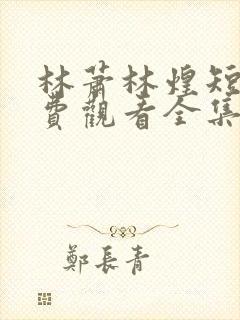 林蕭林煌短
費觀看全集
鄭長青